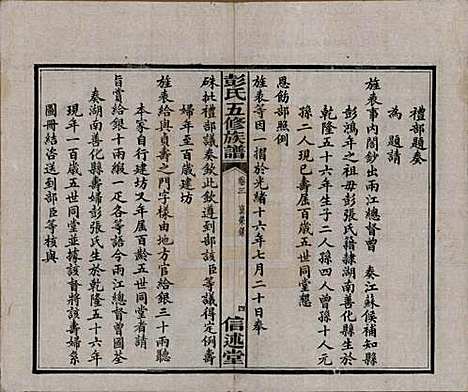 禮部題奏
為 題請
旌表事內閣鈔出兩江總督曾 奏江蘇候補知縣
彭鴻年之祖母彭張氏籍隸湖南善化縣生於
乾隆五十六年生子二人孫四人曾孫十人元
孫二人現已壽屆百齡五世同堂懇
恩飭部照例
旌表等因一摺於光緒十六年七月二十日奉
彭氏五修族譜
卷二
四
信述堂
硃批禮部議奏欽此欽遵到部該臣等議得定例壽
婦年至百歲建坊
旌表給與貞壽之門字樣由地方官給銀三十兩聽
本家自行建坊又年屆百齡五世同堂者請
旨賞給銀十兩緞一疋各等語今兩江總督曾國荃
奏湖南善化縣壽婦彭張氏生於乾隆五十六年
現年一百歲五世同堂並據該督將該壽婦系
圖冊結咨送到部臣等核與